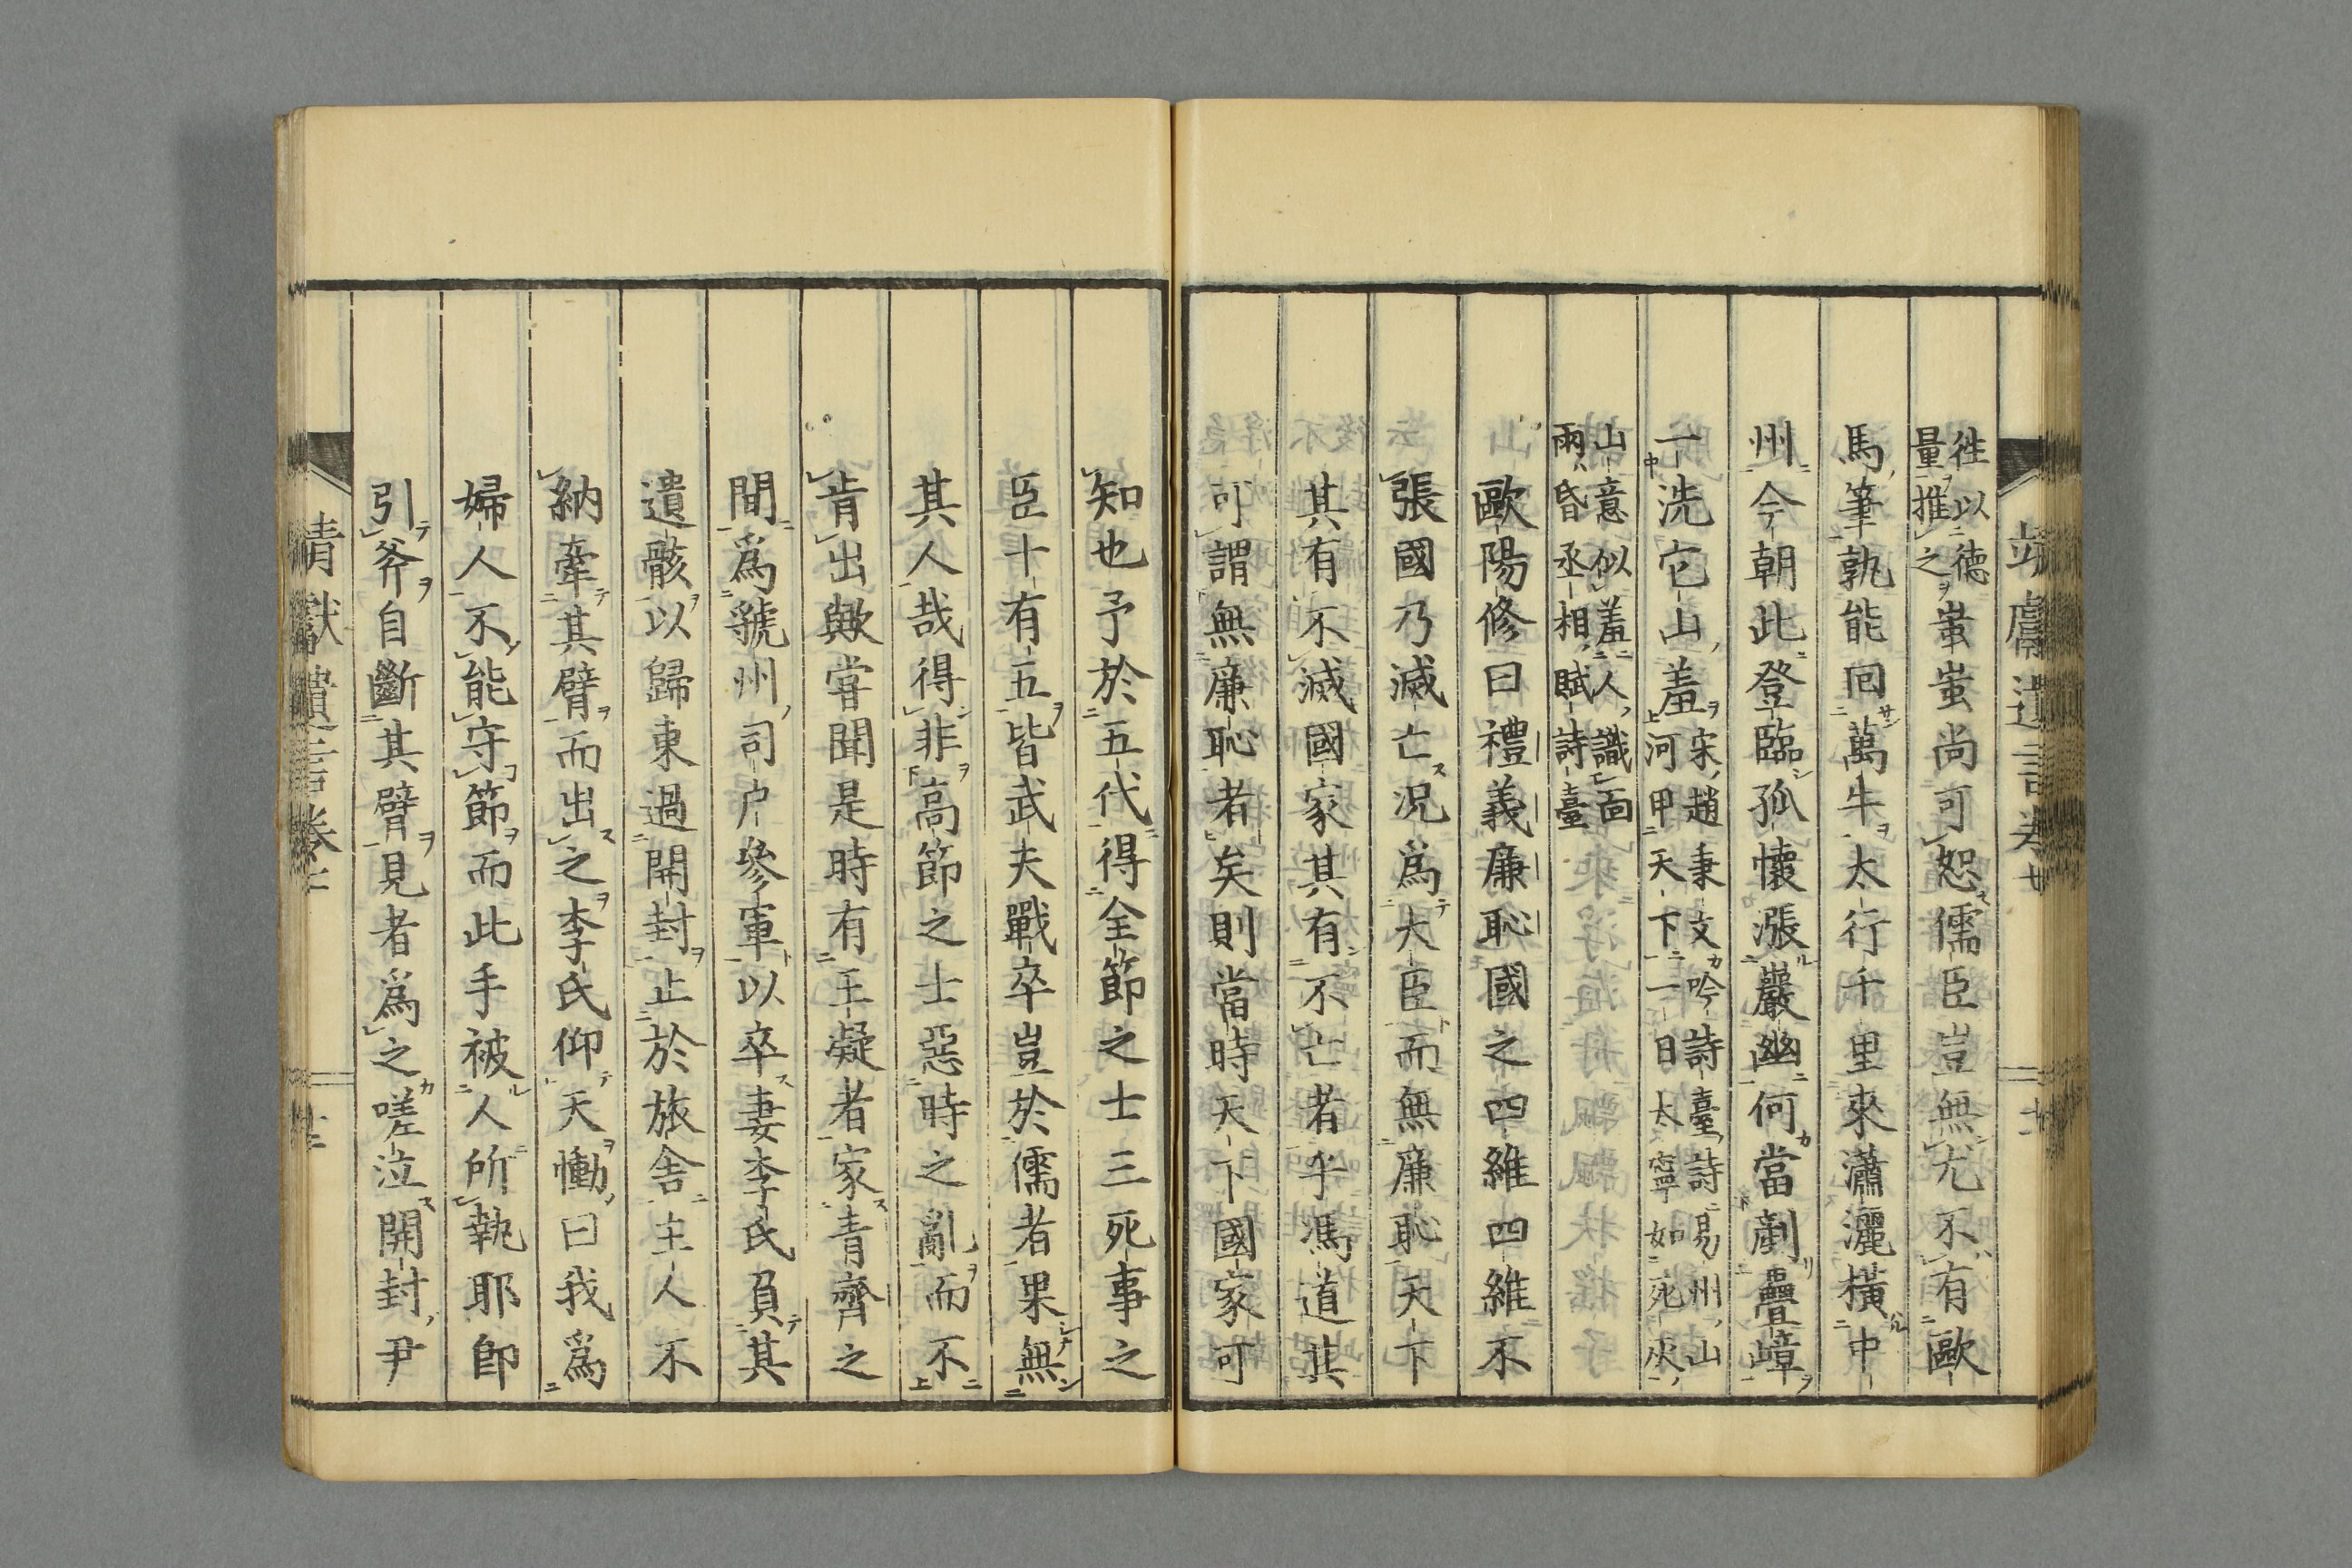 徃以德
量推之蚩蚩尚可恕儒臣豈無尤不有歐
馬筆孰能回萬牛太行千里來瀟灑橫中
州今朝此登臨孤懷漲巖幽何當剷疊嶂
一洗它山羞宋趙秉文吟詩臺詩易州山
河甲天下一日太寧如死灰
山意似羞人識面
兩昏丞相賦詩臺
歐陽修曰禮義廉恥國之四維四維不
張國乃滅亡況爲大臣而無廉恥天下
其有不滅國家其有不亡者乎馮道其
可謂無廉恥者矣則當時天下國家可
知也予於五代得全節之士三死事之
臣十有五皆武夫戰卒豈於儒者果無
其人哉得非高節之士惡時之亂而不
肯出歟嘗聞是時有王凝者家青齊之
間爲虢州司户參軍以卒妻李氏負其
遺骸以歸東過開封止於旅舍主人不
納牽其臂而出之李氏仰天慟曰我爲
婦人不能守節而此手被人所執耶卽
引斧自斷其臂見者爲之嗟泣開封尹